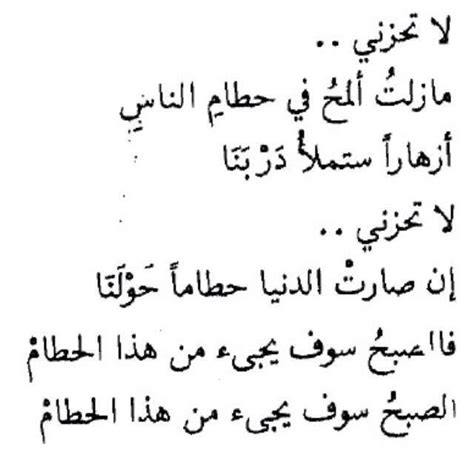 لا تحزني ..
مازلتُ ألمحُ في حطامِ الناسِ
أزهاراً ستملأُ دَرْبَنَا
لا تحزني ..
إن صارتْ الدنيا حطاماً حَوْلَنَا
فالصبحُ سوف يجىء من هذا الحطامْ
الصبحُ سوف يجىء من هذا الحطامْ